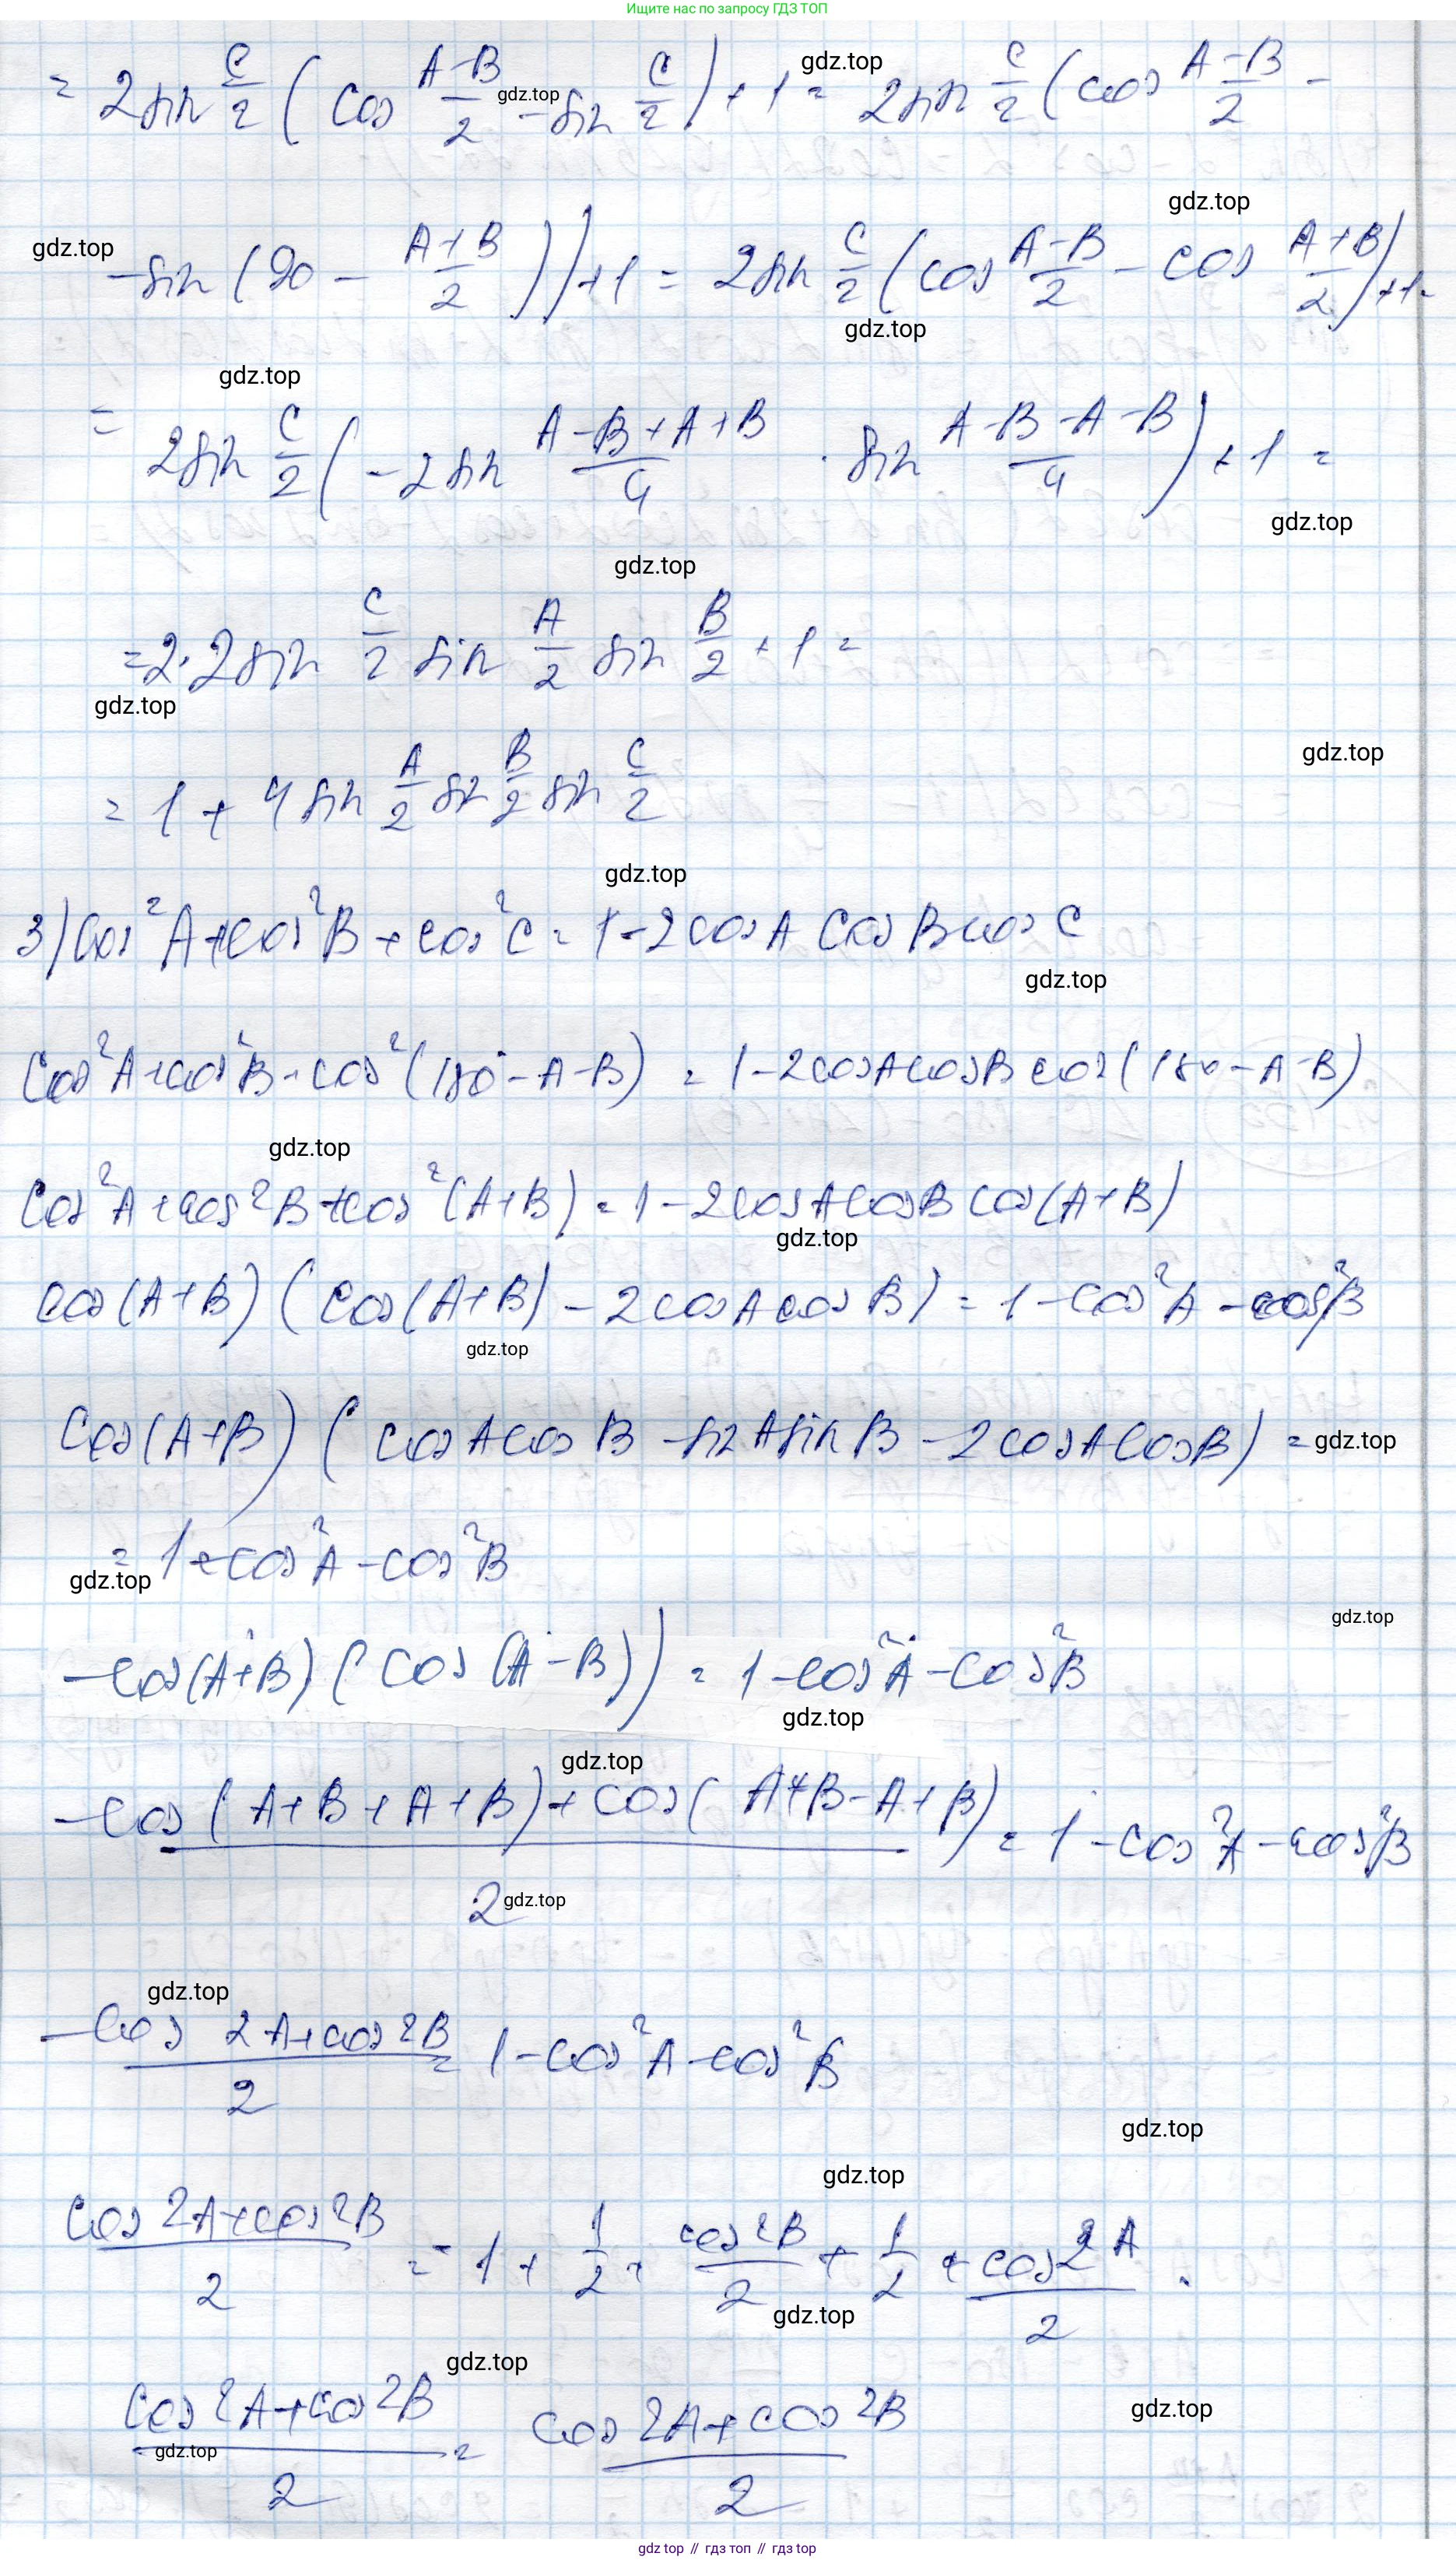 Ищите нас по запросу ГДЗ ТОП
= 2sin C/2 (cos (A-B)/2 - sin C/2) + 1 = 2sin C/2 (cos (A-B)/2 -
gdz.top
gdz.top
gdz.top
- sin (90 - (A+B)/2)) + 1 = 2sin C/2 (cos (A-B)/2 - cos (A+B)/2) + 1 =
gdz.top
gdz.top
gdz.top
= 2sin C/2 (-2sin (A-B+A+B)/4 · sin (A-B-A-B)/4) + 1 =
gdz.top
gdz.top
= 2·2sin C/2 sin A/2 sin B/2 + 1 =
gdz.top
gdz.top
= 1 + 4sin A/2 sin B/2 sin C/2
gdz.top
3) cos²A + cos²B + cos²C = 1 - 2cosA cosB cosC
gdz.top
cos²A + cos²B + cos²(180° - A - B) = 1 - 2cosA cosB cos(180 - A - B)
gdz.top
cos²A + cos²B + cos²(A+B) = 1 - 2cosA cosB cos(A+B)
gdz.top
cos(A+B) (cos(A+B) - 2cosA cosB) = 1 - cos²A - cos²B
gdz.top
cos(A+B) (cosA cosB - sinA sinB - 2cosA cosB) =
gdz.top
= 1 - cos²A - cos²B
gdz.top
gdz.top
- cos(A+B) (cos(A-B)) = 1 - cos²A - cos²B
gdz.top
gdz.top
- (cos(A+B+A+B) + cos(A+B-A+B))/2 = 1 - cos²A - cos²B
gdz.top
gdz.top
- (cos 2A + cos 2B)/2 = 1 - cos²A - cos²B
gdz.top
gdz.top
(cos 2A + cos 2B)/2 = -1 + 1/2 + cos 2B/2 + 1/2 + cos 2A/2
gdz.top
gdz.top
(cos 2A + cos 2B)/2 = (cos 2A + cos 2B)/2
gdz.top
gdz.top
gdz.top // гдз топ // гдз top